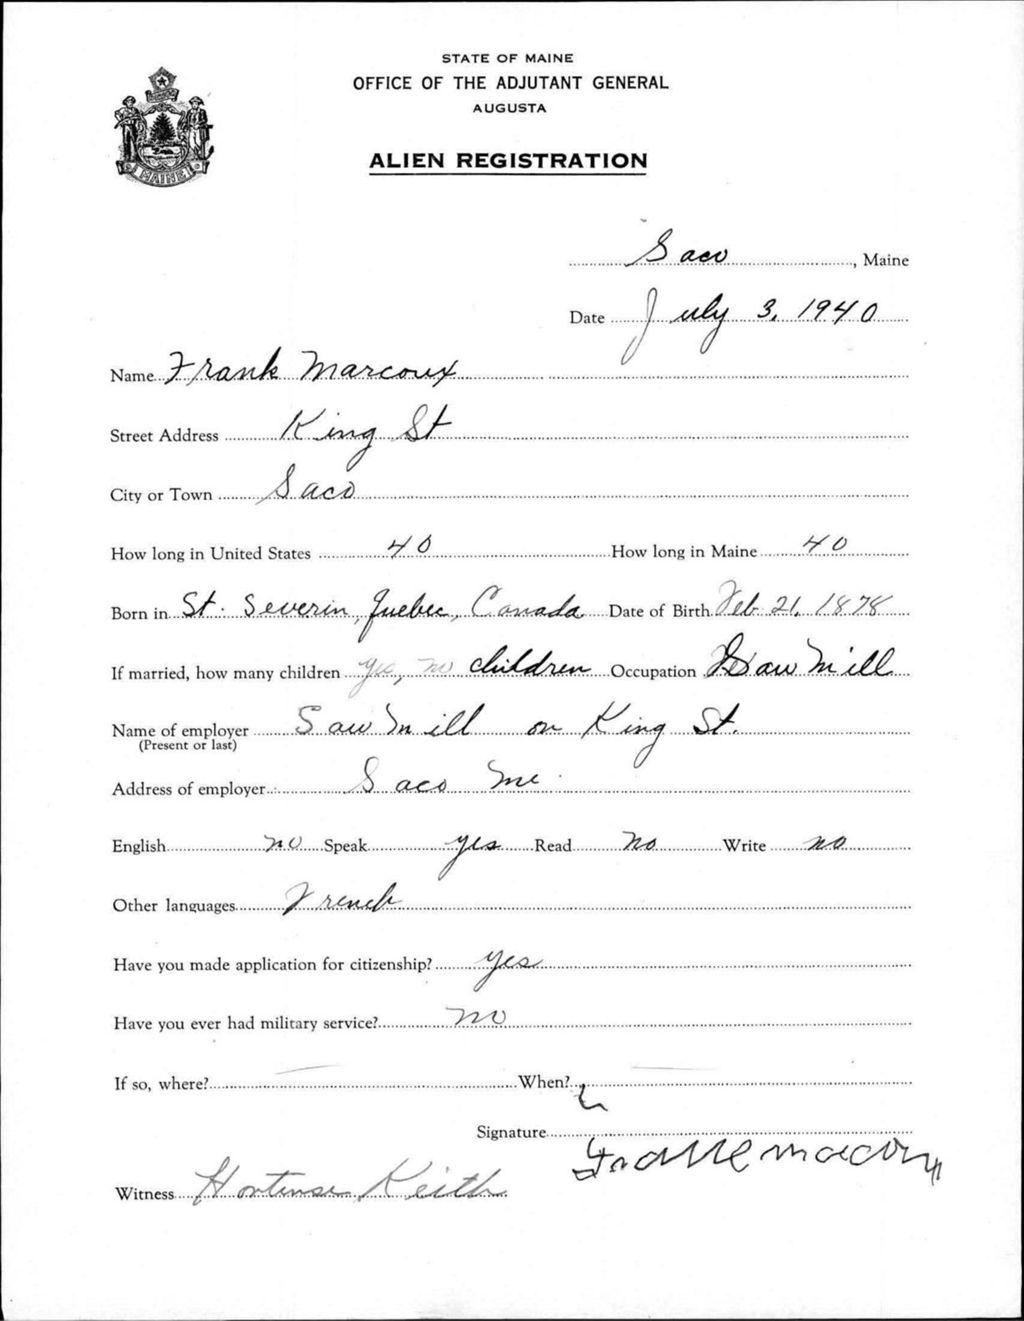 STATE OF MAINE
OFFICE OF THE ADJUTANT GENERAL
AUGUSTA
ALIEN REGISTRATION
MAINE
Saco, Maine
Date July 3, 1940
Name Frank Marcoux
Street Address King St
City or Town Saco
How long in United States 40 How long in Maine 40
Born in St. Severin, Quebec, Canada Date of Birth Feb 21, 1878
If married, how many children yes, no children Occupation Saw Mill
Name of employer Saw Mill on King St.
(Present or last)
Address of employer Saco Me.
English no Speak yes Read no Write no
Other languages French
Have you made application for citizenship? yes
Have you ever had military service? no
If so, where? When?
Signature
Witness Hortense Keith